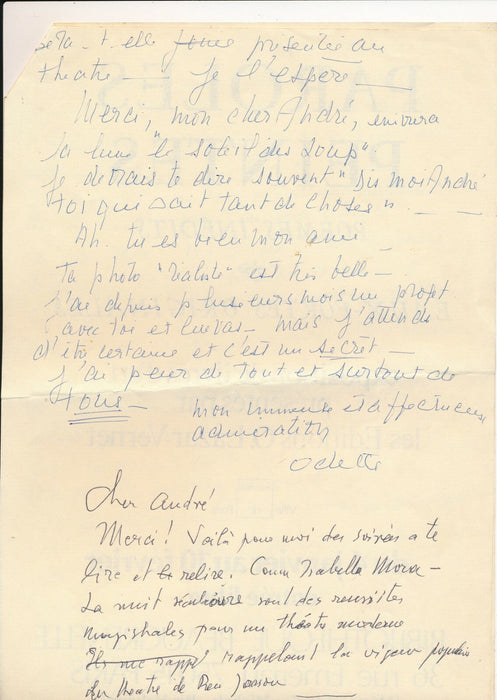 sera-t-elle présentée au
théâtre — Je l'espère —
Merci, mon cher André,
la lune "le soleil des loups".
Je devrais te dire souvent "Dis moi André
toi qui sait tant de choses". — —
Ah. tu es bien mon ami
Ta photo "réaliste" est très belle —
J'ai depuis plusieurs mois un projet
avec toi et — mais j'attends
d'être certaine et c'est un secret —
J'ai peur de tout et surtout de
tous —
mon immense et affectueuse
admiration
Odette
Cher André
Merci! Voilà pour moi des soirées à te
lire et relire. Comme Isabella Morra —
La nuit sont des réussites
magistrales pour un théâtre moderne
rappelant la vigueur
du théâtre de Ben Jonson